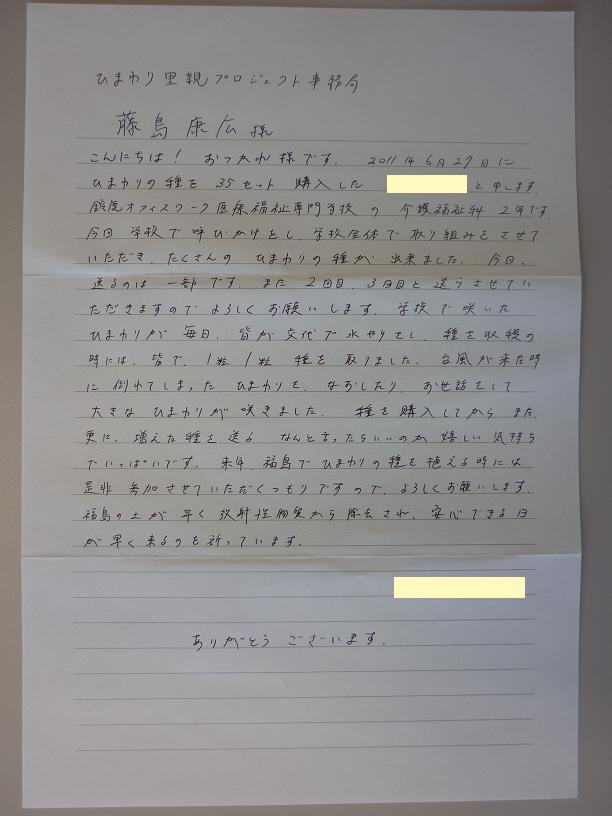 ひまわり里親プロジェクト事務局
藤島康広様
こんにちは! おつかれ様です. 2011年6月27日に
ひまわりの種を 35セット 購入した と申します.
鈴鹿オフィスワーク医療福祉専門学校の 介護福祉科 2年です.
今回 学校で呼びかけをし, 学校全体で取り組みをさせて
いただき, たくさんの ひまわりの種が 出来ました. 今日,
送るのは 一部です. また 2回目, 3回目と送らさせてい
ただきますのでよろしくお願いします. 学校で咲いた
ひまわりが 毎日, 皆が交代で水やりをし, 種を収穫の
時には, 皆で, 1粒 1粒 種を 取りました. 台風が来た時
に倒れてしまった ひまわりを, なおしたり, お世話をして
大きな ひまわりが 咲きました. 種を購入してから また,
更に, 増えた種を送る なんと言ったらいいのか 嬉しい 気持ち
でいっぱいです. 来年, 福島でひまわりの種を植える時には
是非 参加させていただくつもりですので, よろしくお願いします.
福島の土が 早く 放射性物質から 除去され, 安心できる日
が早く来るのを祈っています.
ありがとう ございます.